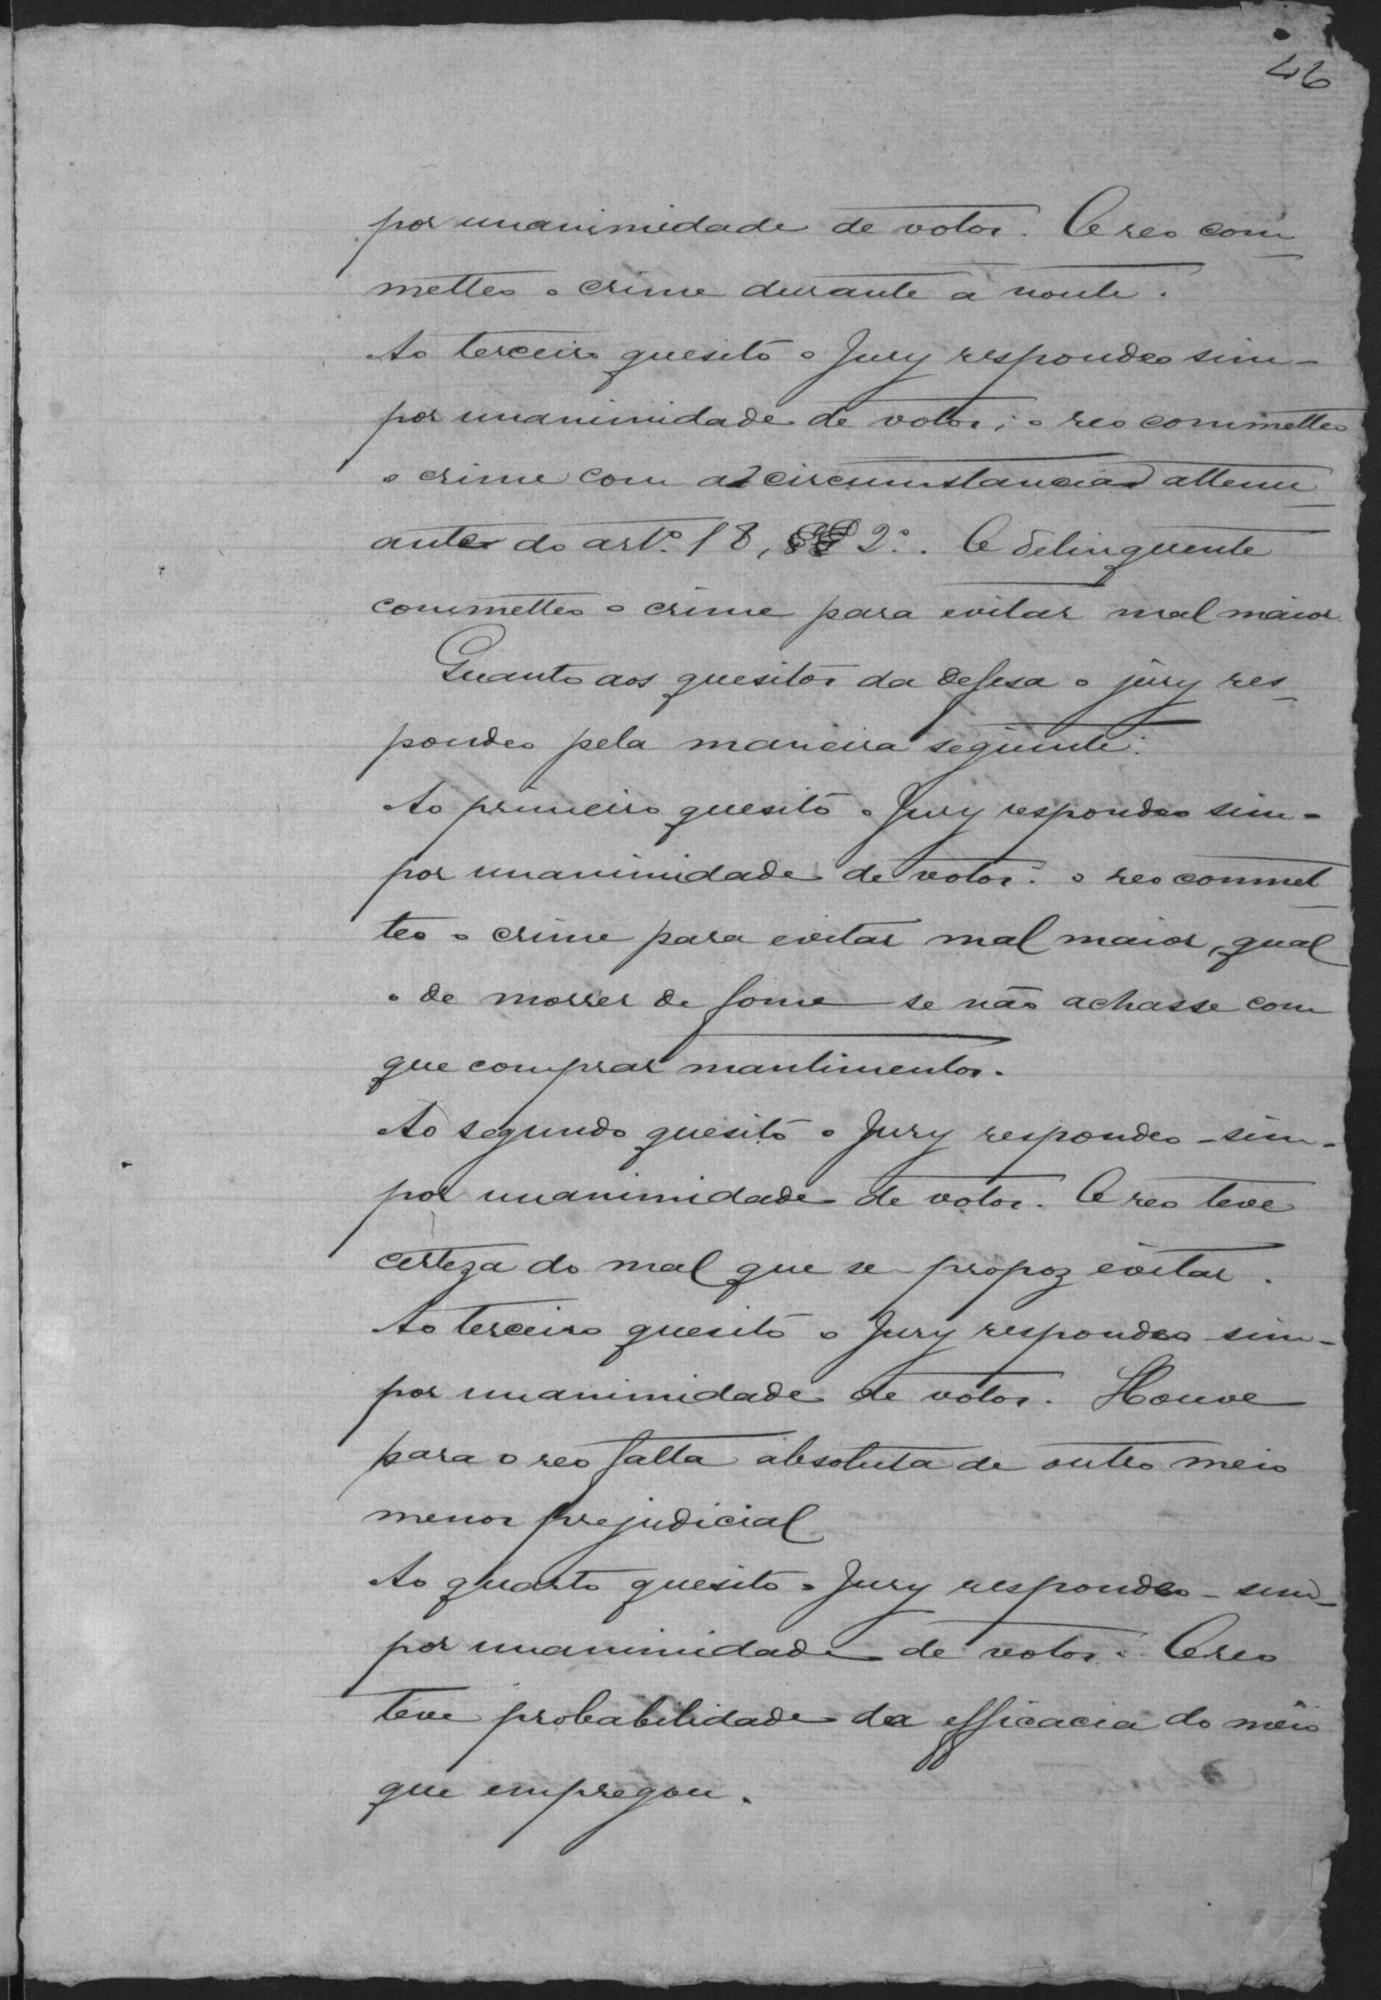 46
por unanimidade de votos. O reo com
metteo o crime durante a noute.
Ao terceiro quesito o Jury respondeo sim -
por unanimidade de votos; o reo commetteo
o crime com as circumstancias attenu
ante do artº. 18, § 2º. O delinquente
commetteo o crime para evitar mal maior
Quanto aos quesitos da defesa o jury res-
pondeo pela maneira seguinte:
Ao primeiro quesito o Jury respondeo sim -
por unanimidade de votos: o reo commet
teo o crime para evitar mal maior, qual
o de morrer de fome se não achasse com
que comprar mantimentos.
Ao segundo quesito o Jury respondeo - sim -
por unanimidade de votos. O reo teve
certeza do mal que se propoz evitar.
Ao terceiro quesito o Jury respondeo sim -
por unanimidade de votos. Houve
para o reo falta absoluta de outro meio
menos prejudicial
Ao quarto quesito o Jury respondeo - sim -
por unanimidade de votos. O reo
teve probabilidade da efficacia do meio
que empregou.